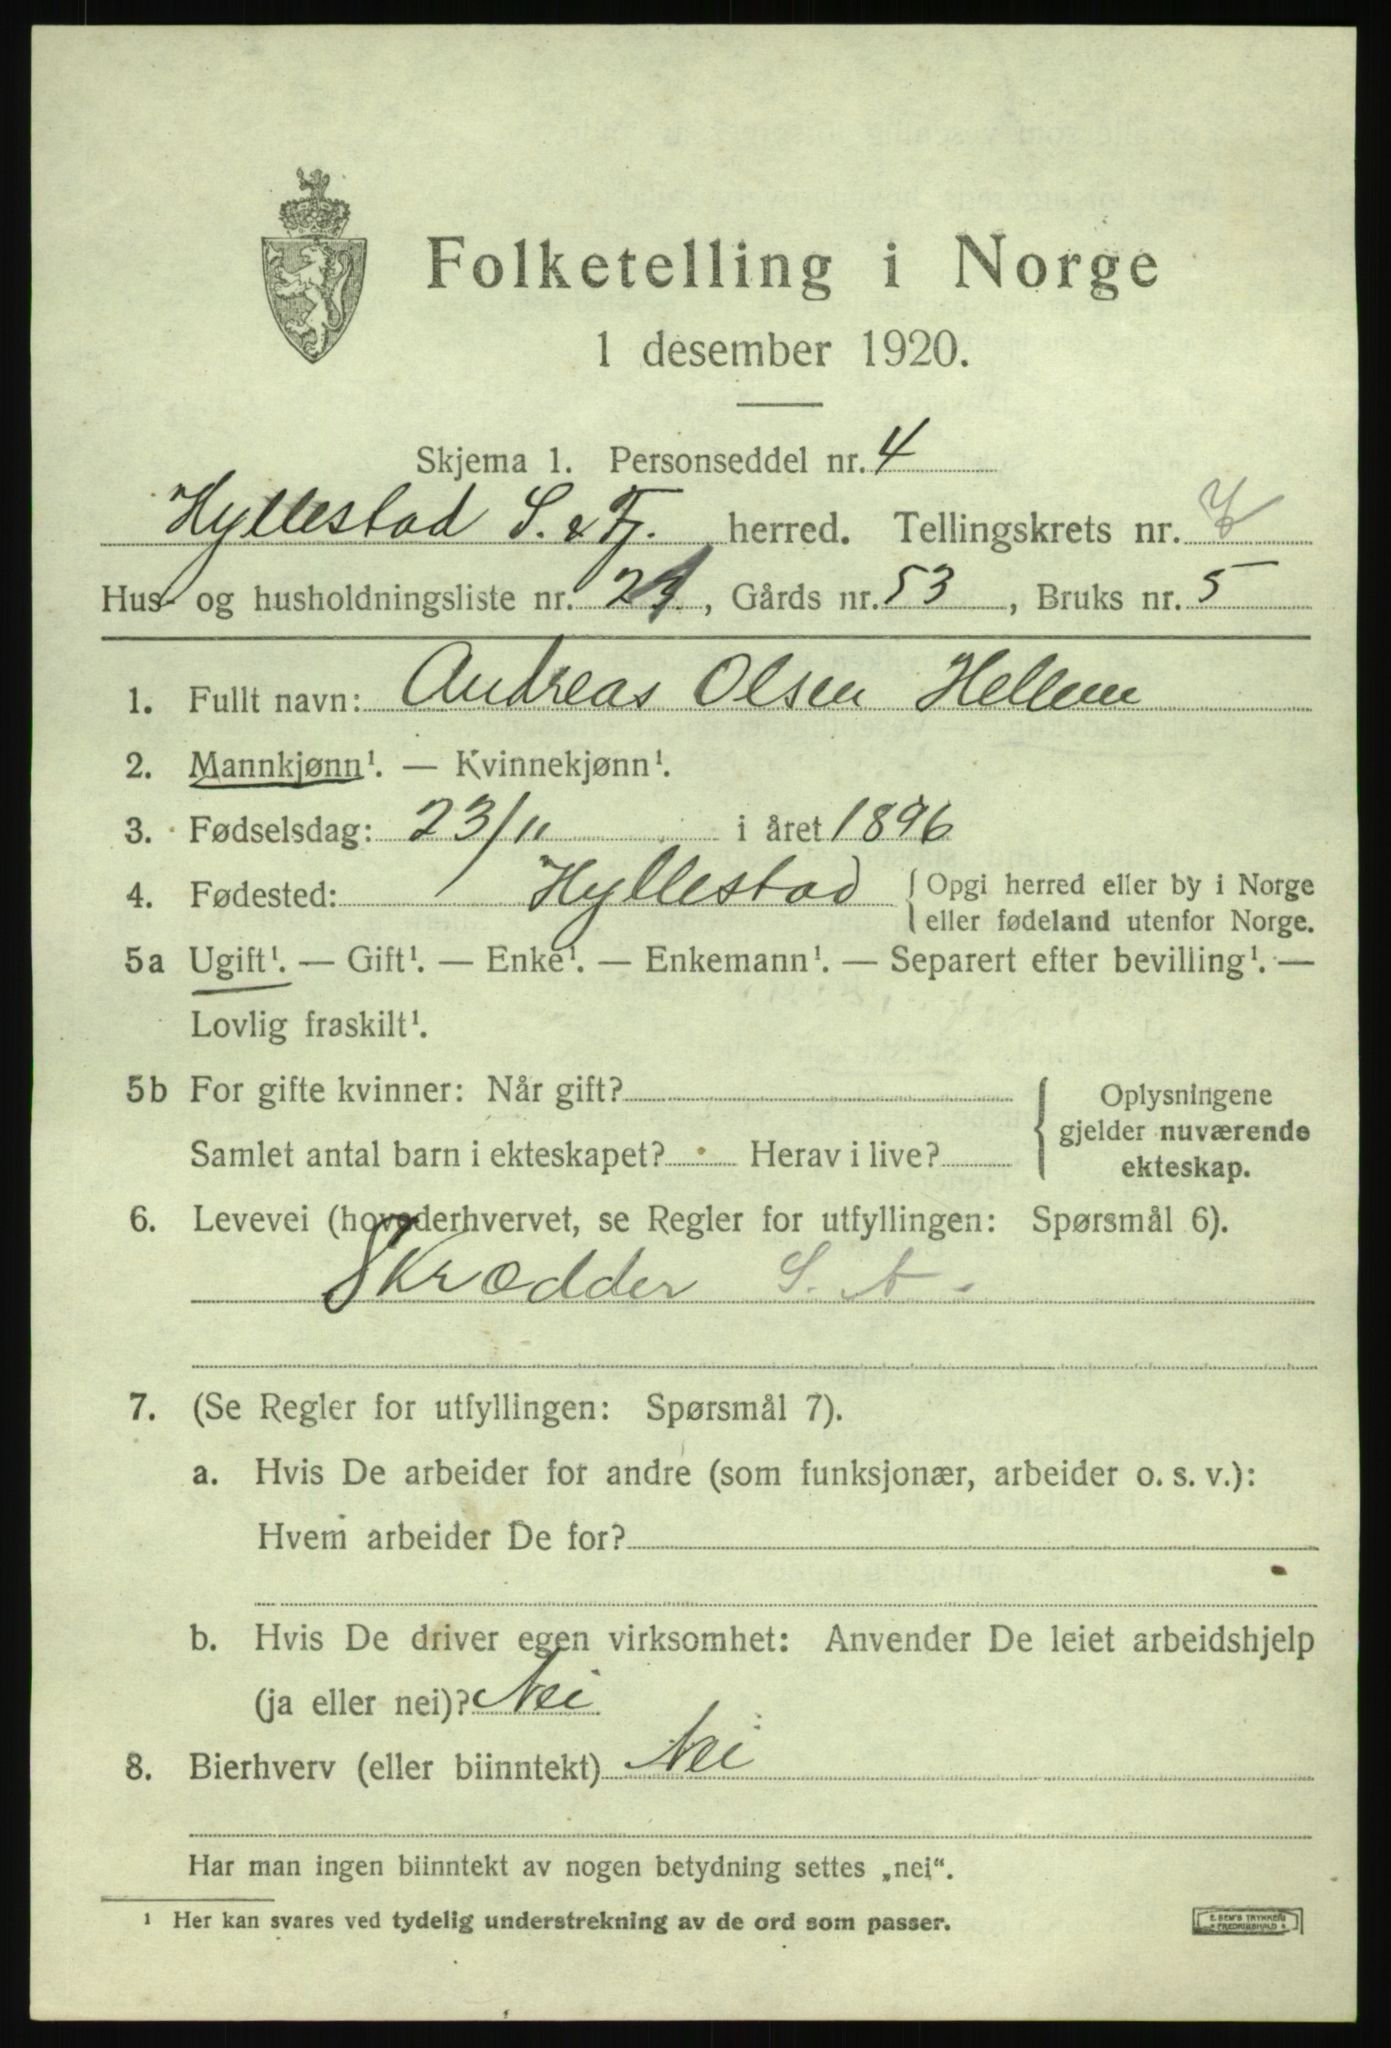 Folketelling i Norge
1 desember 1920.
Skjema 1. Personseddel nr. 4
Hyllestad S. & Fj. herred. Tellingskrets nr. 7
Hus- og husholdningsliste nr. 21, Gårds nr. 53, Bruks nr. 5
1. Fullt navn: Andreas Olsen Hellem
2. Mannkjønn¹. — Kvinnekjønn¹.
3. Fødselsdag: 23/11 i året 1896
4. Fødested: Hyllestad { Opgi herred eller by i Norge
eller fødeland utenfor Norge.
5a Ugift¹. — Gift¹. — Enke¹. — Enkemann¹. — Separert efter bevilling¹. —
Lovlig fraskilt¹.
5b For gifte kvinner: Når gift? { Oplysningene
gjelder nuværende
Samlet antal barn i ekteskapet? Herav i live? ekteskap.
6. Levevei (hovederhvervet, se Regler for utfyllingen: Spørsmål 6).
Skrædder S. A.
7. (Se Regler for utfyllingen: Spørsmål 7).
a. Hvis De arbeider for andre (som funksjonær, arbeider o. s. v.):
Hvem arbeider De for?
b. Hvis De driver egen virksomhet: Anvender De leiet arbeidshjelp
(ja eller nei)? Nei
8. Bierhverv (eller biinntekt) Nei
Har man ingen biinntekt av nogen betydning settes „nei“.
¹ Her kan svares ved tydelig understrekning av de ord som passer.
E. SEM'S TRYKKERI
FREDRIKSHALD